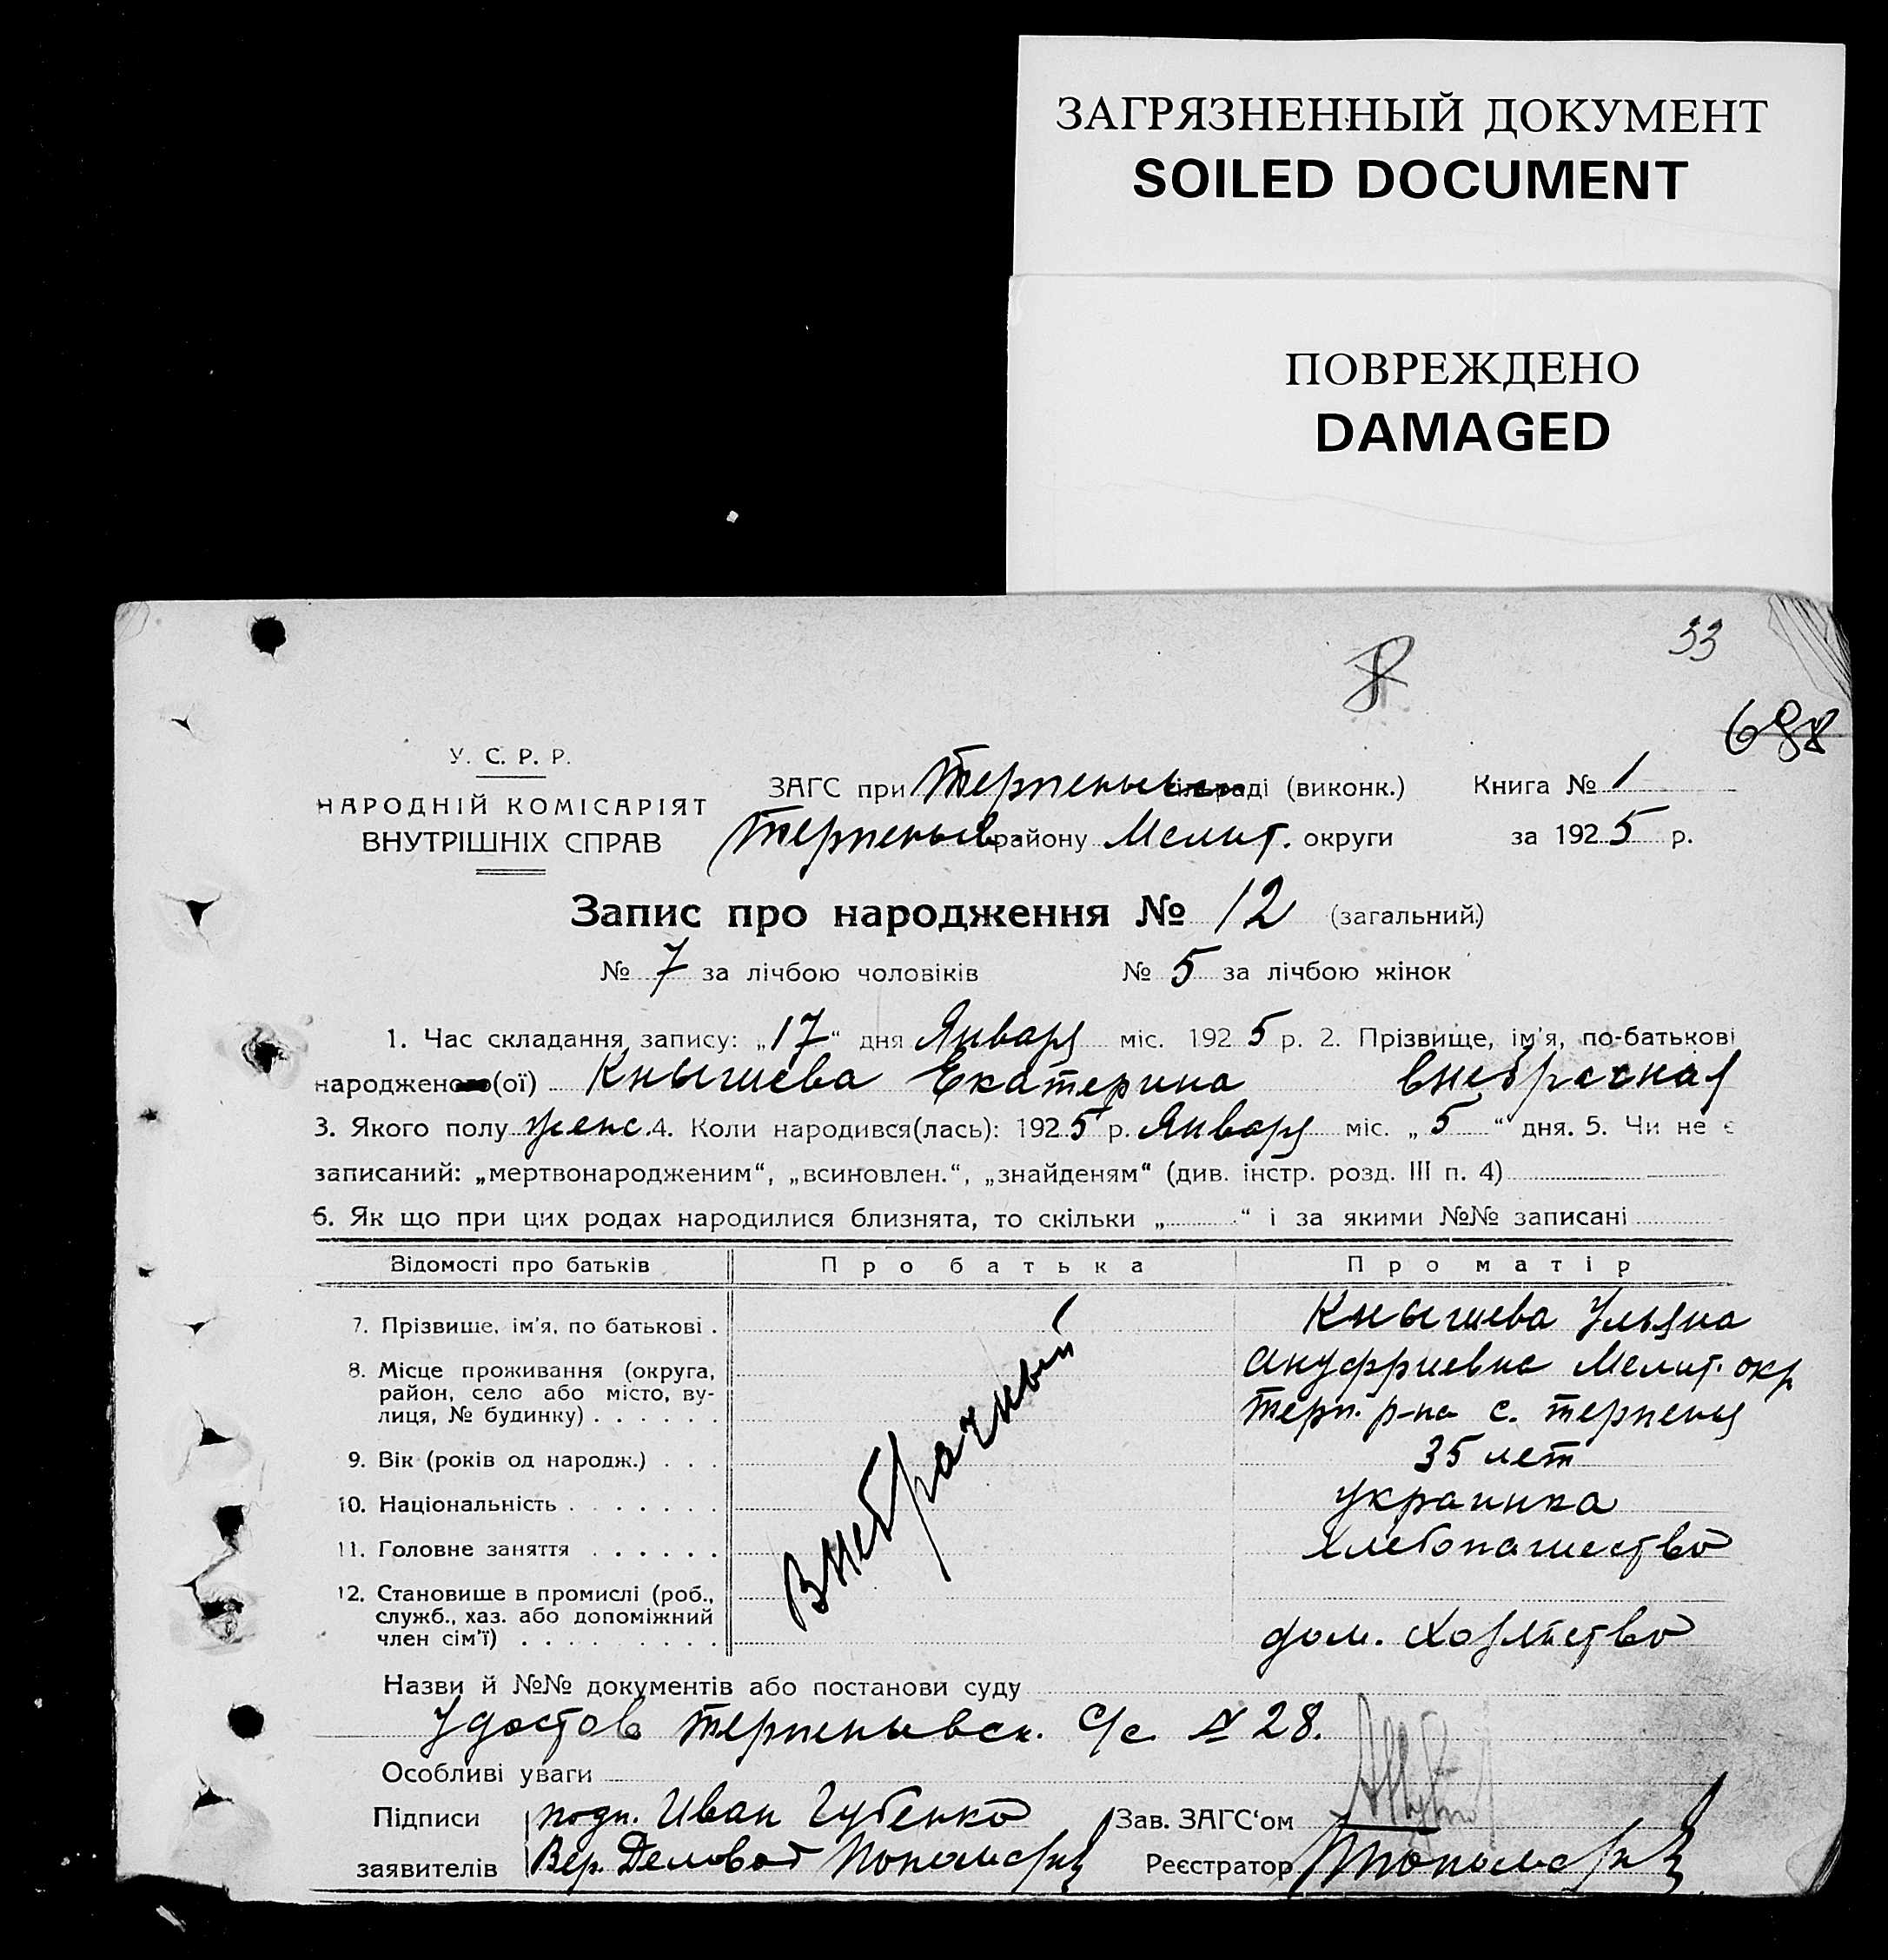 ЗАГРЯЗНЕННЫЙ ДОКУМЕНТ
SOILED DOCUMENT
ПОВРЕЖДЕНО
DAMAGED
33
8
698
У. С. Р. Р.
НАРОДНІЙ КОМІСАРІЯТ
ВНУТРІШНІХ СПРАВ
ЗАГС при Терпеньев раді (виконк.) Книга № 1
Терпеньев району Мелит. округи за 1925 р.
Запис про народження № 12 (загальний)
№ 7 за лічбою чоловіків № 5 за лічбою жінок
1. Час складання запису: „17“ дня Января міс. 1925 р. 2. Прізвище, ім'я, по-батькові
народженого(ої) Кнышева Екатерина внебрачная
3. Якого полу женс. 4. Коли народився(лась): 1925 р. Января міс. „5“ дня. 5. Чи не є
записаний: „мертвонародженим“, „всиновлен.“, „знайденям“ (див. інстр. розд. III п. 4)
6. Як що при цих родах народилися близнята, то скільки „ “ і за якими №№ записані
Відомості про батьків Про батька Про матір
7. Прізвище, ім'я, по батькові . Кнышева Ульяна
8. Місце проживання (округа, район, село або місто, вулиця, № будинку) . . . . . . Ануфриевна Мелит. окр
Терп. р-на с. Терпенья
9. Вік (років од народж.) . . . 35 лет
10. Національність . . . . . . . украинка
11. Головне заняття . . . . . . хлебопашество
12. Становище в промислі (роб., служб., хаз. або допоміжний член сім'ї) . . . . . . . . . дом. хозяйство
Внебрачный
Назви й №№ документів або постанови суду
Удостов Терпеньевск. С/с № 28.
Особливі уваги
Підписи подп. Иван Губенко Зав. ЗАГС'ом
заявителів Вер. Деловод Реєстратор